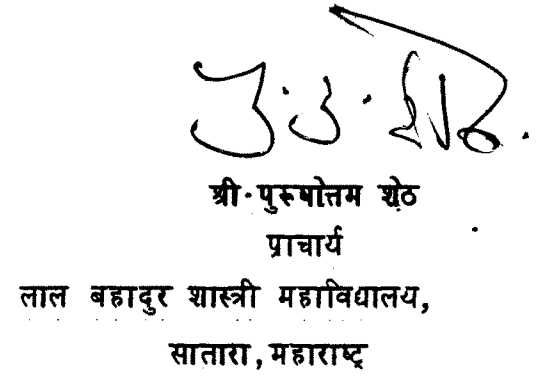 श्री. पुरुषोत्तम शेठ
प्राचार्य
लाल बहादुर शास्त्री महाविद्यालय,
सातारा, महाराष्ट्र